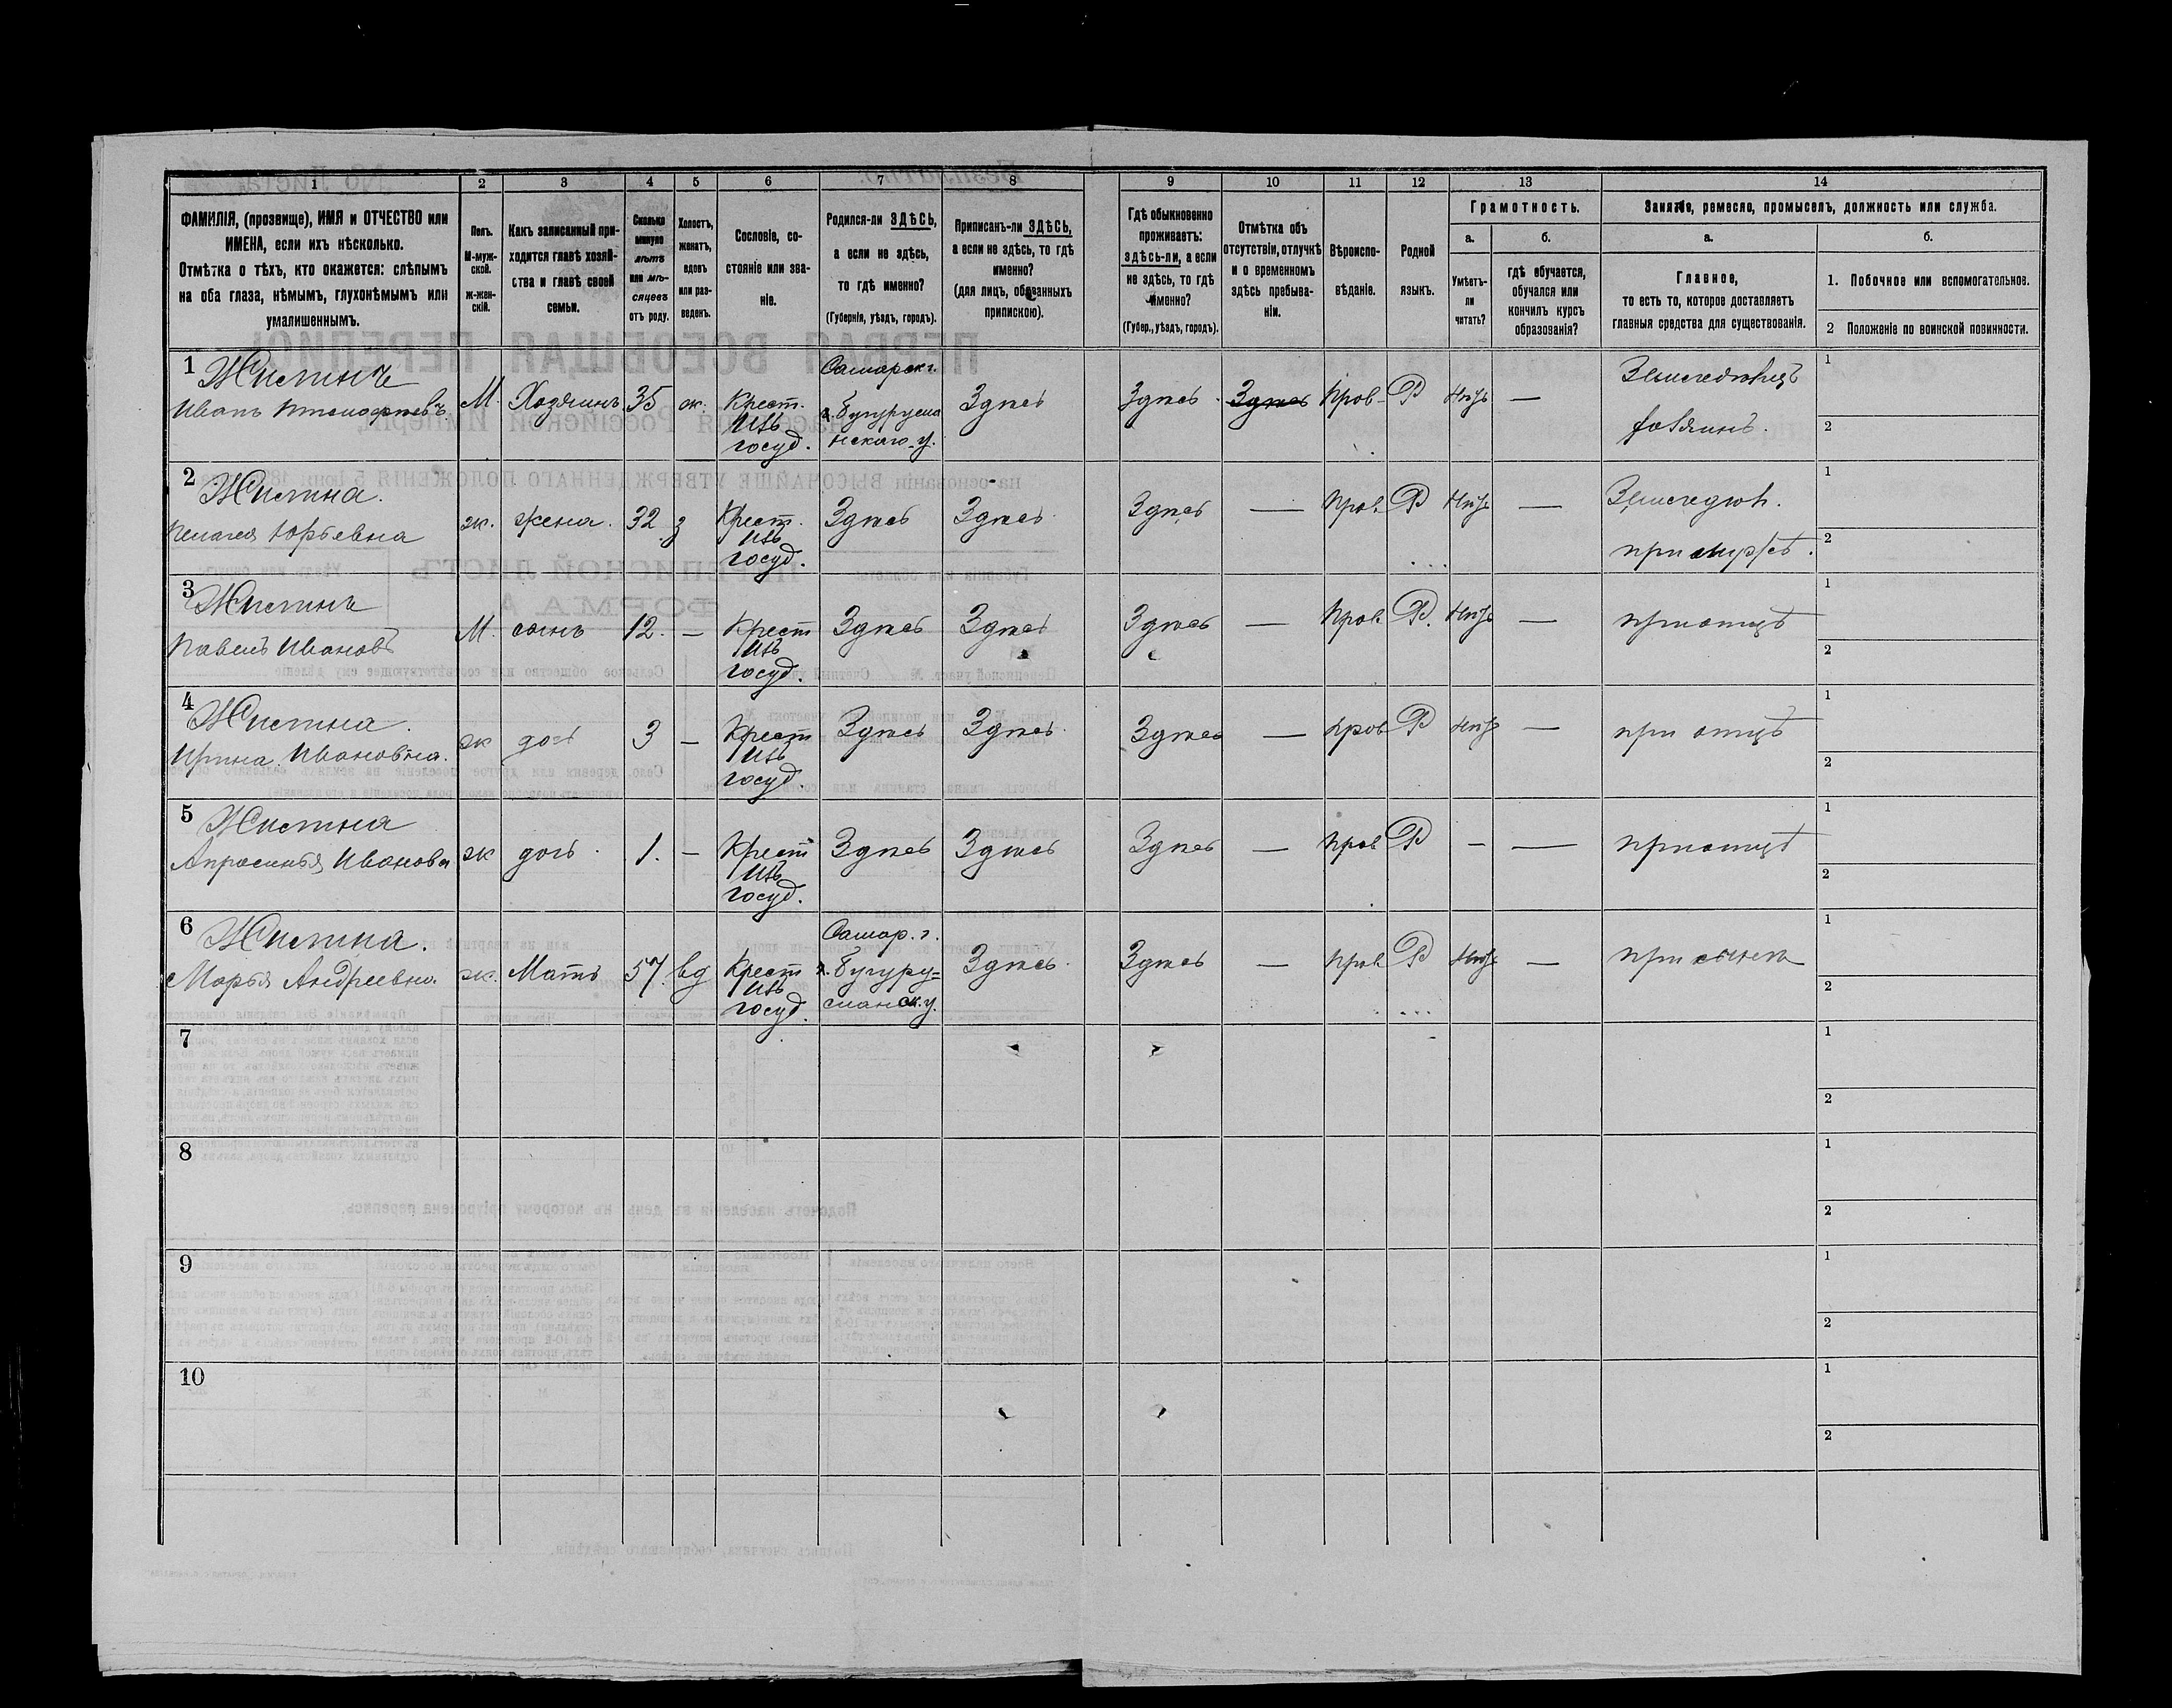 1 2 3 4 5 6 7 8 9 10 11 12 13 14
ФАМИЛІЯ, (прозвище), ИМЯ и ОТЧЕСТВО или
ИМЕНА, если ихъ нѣсколько.
Отмѣтка о тѣхъ, кто окажется: слѣпымъ
на оба глаза, нѣмымъ, глухонѣмымъ или
умалишеннымъ.
Полъ.
М-муж-
ской.
ж-жен-
скій.
Какъ записанный при-
ходится главѣ хозяй-
ства и главѣ своей
семьи.
Сколько
минуло
лѣтъ
или мѣ-
сяцевъ
отъ роду.
Холостъ,
женатъ,
вдовъ
или раз-
веденъ.
Сословіе, со-
стояніе или зва-
ніе.
Родился-ли ЗДѢСЬ,
а если не здѣсь,
то гдѣ именно?
(Губернія, уѣздъ, городъ).
Приписанъ-ли ЗДѢСЬ,
а если не здѣсь, то гдѣ
именно?
(для лицъ, обязанныхъ
припискою).
Гдѣ обыкновенно
проживаетъ:
здѣсь-ли, а если
не здѣсь, то гдѣ
именно?
(Губер., уѣздъ, городъ).
Отмѣтка объ
отсутствіи, отлучкѣ
и о временномъ
здѣсь пребыва-
ніи.
Вѣроиспо-
вѣданіе.
Родной
языкъ.
Грамотность.
а.
Умѣетъ-
ли
читать?
б.
гдѣ обучается,
обучался или
кончилъ курсъ
образованія?
Занятіе, ремесло, промыселъ, должность или служба.
а.
Главное,
то есть то, которое доставляетъ
главныя средства для существованія.
б.
1. Побочное или вспомогательное.
2 Положеніе по воинской повинности.
1 Жилинъ
Иванъ
М. Хозяинъ 35 ж.
Крест.
изъ
госуд.
Самарск г.
Бугурусла
нскаго у.
Здѣсь
Здѣсь
Здѣсь
Пров. Р Нѣтъ —
Земледѣлецъ
хозяинъ.
1
2
2 Жилина.
Пелагея Юрьевна
ж. жена. 32 з
Крест.
изъ
госуд.
Здѣсь Здѣсь Здѣсь — Пров Р Нѣтъ —
Земледѣл.
1
2
3 Жилинъ
Павелъ Ивановъ
М. сынъ 12. —
Крест
изъ
госуд.
Здѣсь Здѣсь Здѣсь — Пров. Р. Нѣтъ — при отцѣ
1
2
4 Жилина.
Ирина Ивановна.
ж дочь 3 —
Крест
изъ
госуд.
Здѣсь Здѣсь. Здѣсь — Пров Р Нѣтъ — при отцѣ
1
2
5 Жилина
Апросинья Иванова
ж дочь 1. —
Крест
изъ
госуд.
Здѣсь Здѣсь Здѣсь — Пров Р - — при отцѣ
1
2
6 Жилина.
Марья Андреевна.
ж. Мать 57. вд
Крест
изъ
госуд.
Самар. г.
Бугуру=
сланск. у.
Здѣсь. Здѣсь — Пров Р Нѣтъ — при сынѣ
1
2
7
1
2
8
1
2
9
1
2
10
1
2